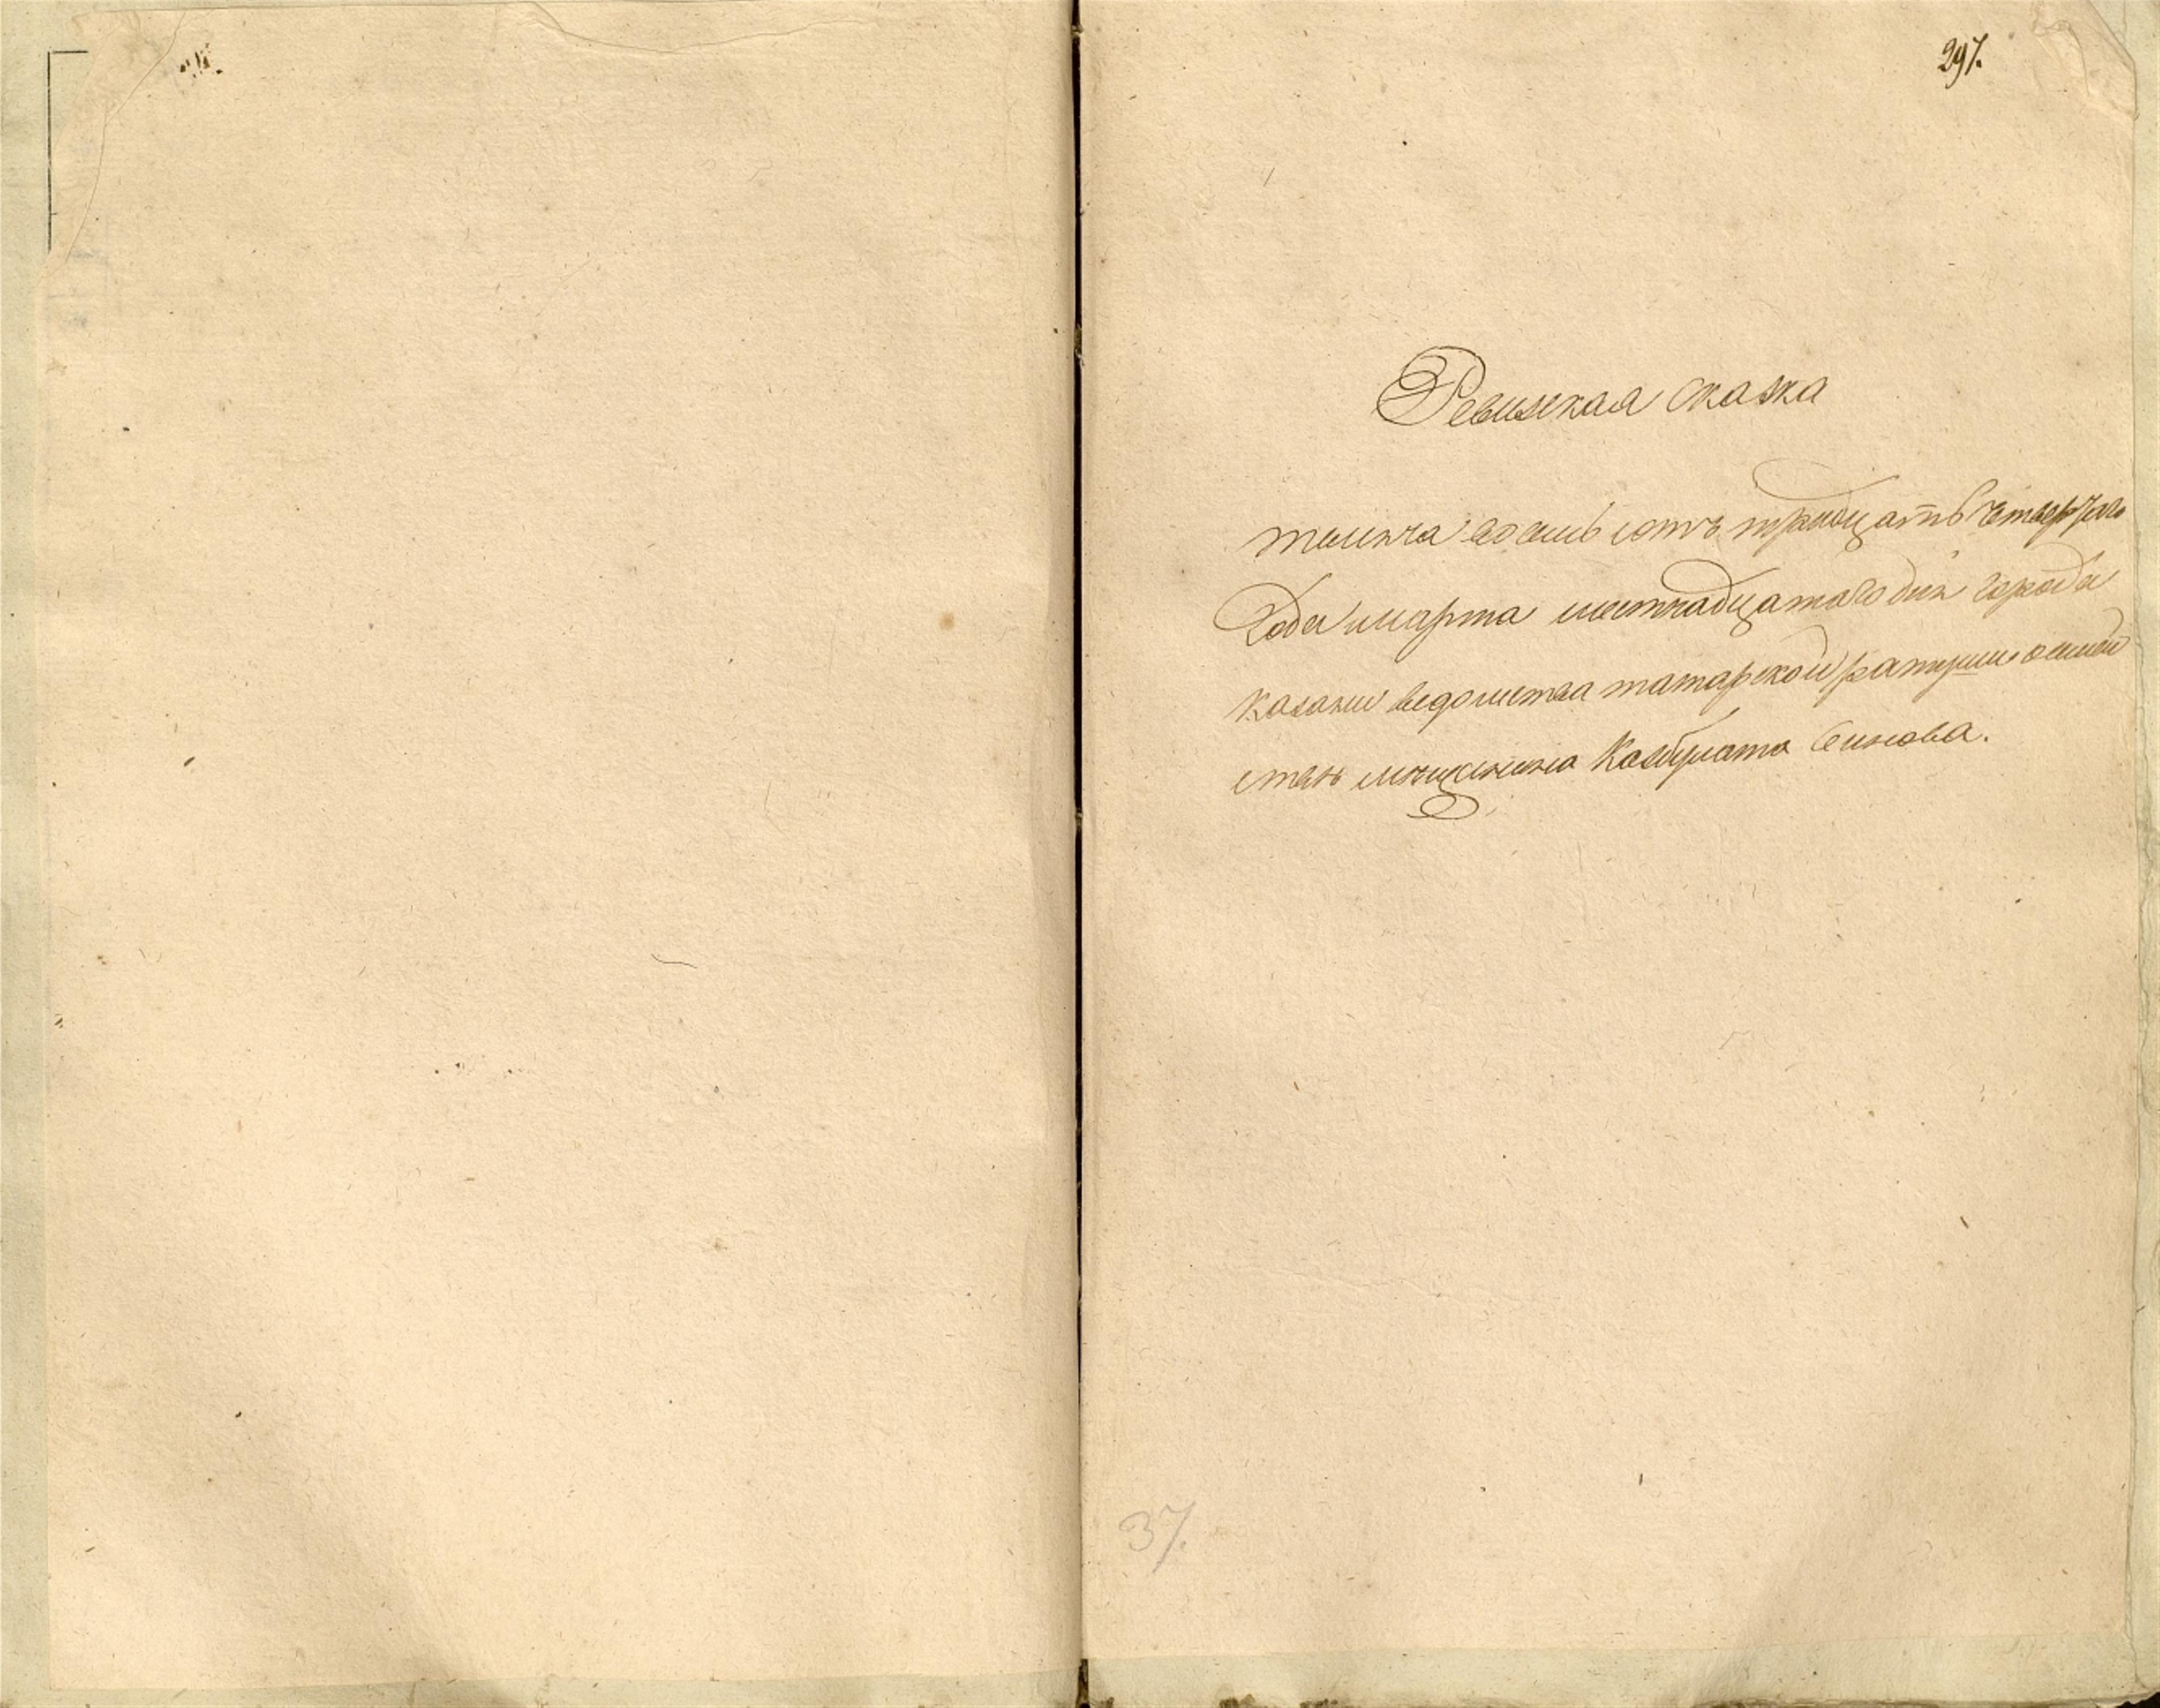 297.
Ревизская сказка
тысяча восемь сотъ тридцать четвертаго
Года марта шестнадцатаго дня города
казани ведомства татарской ратуши о
ства мещанина
37.